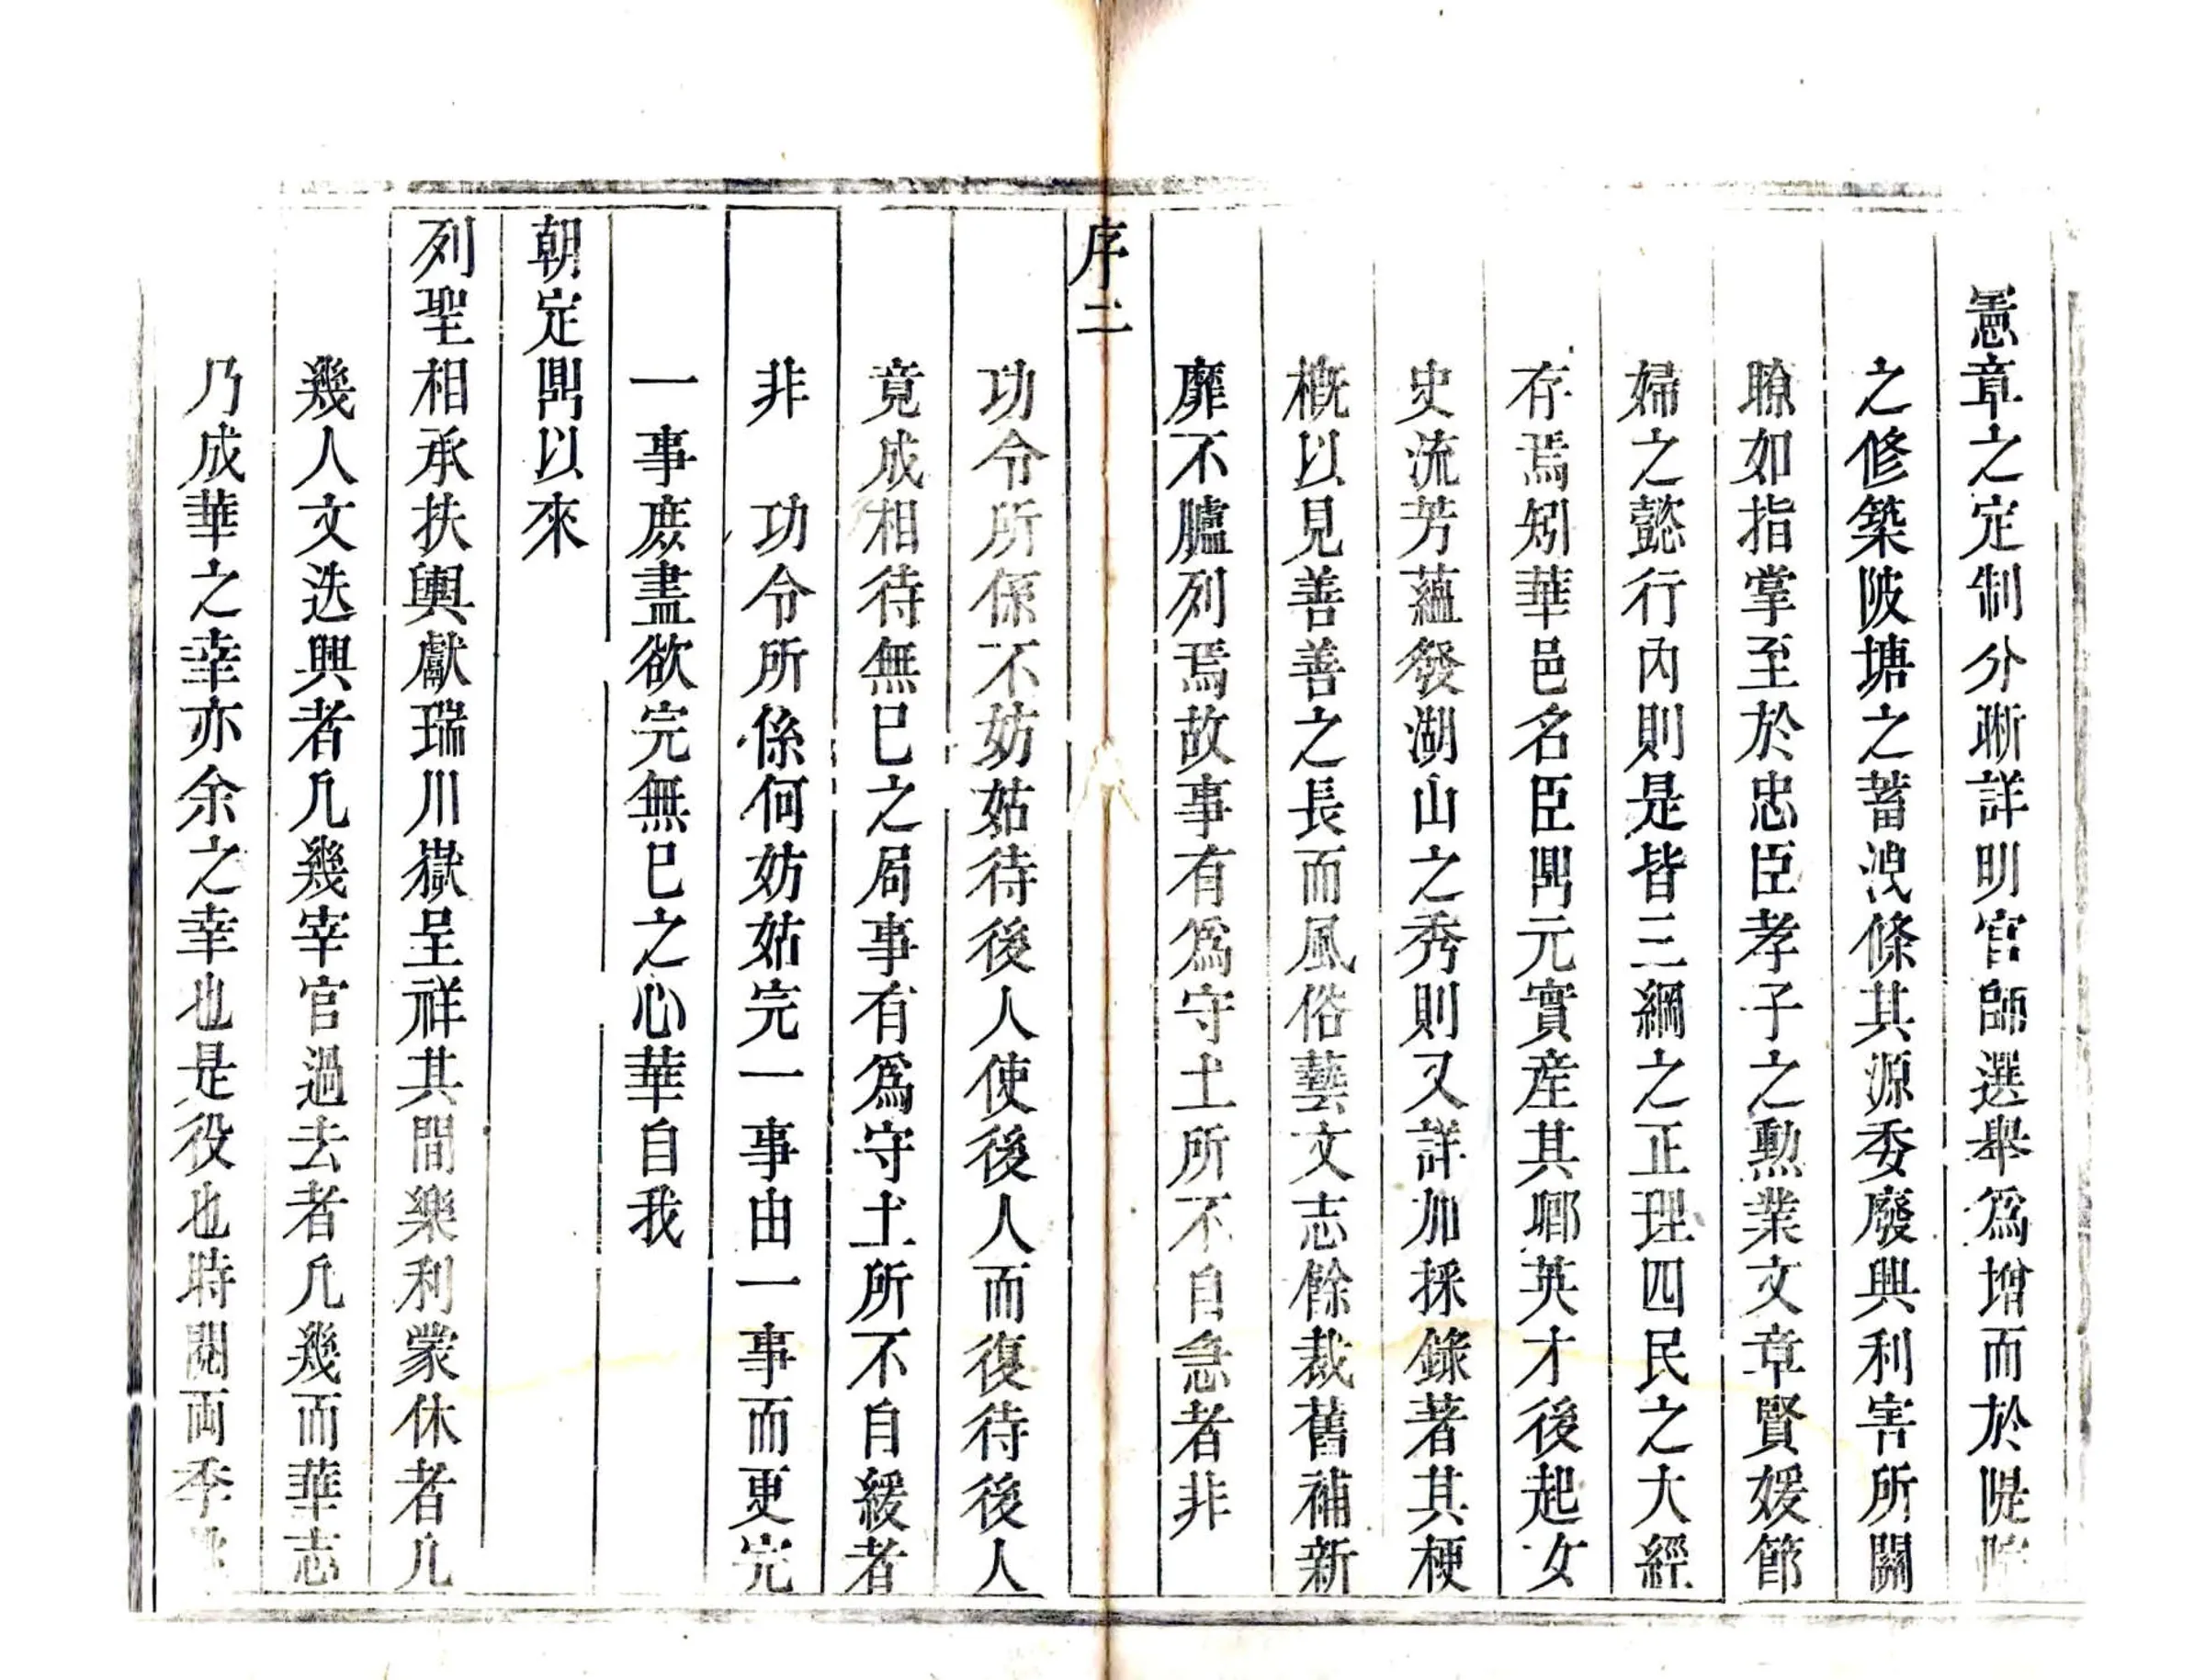 憲章之定制分晰詳明官師選舉爲增而於隄
之修築陂塘之蓄洩條其源委廢興利害所關
瞭如指掌至於忠臣孝子之勲業文章賢媛節
婦之懿行內則是皆三綱之正理四民之大經
存焉矧華邑名臣鼎元實産其鄉英才後起女
史流芳蘊發湖山之秀則又詳加採錄著其梗
概以見善善之長而風俗藝文志餘裁舊補新
靡不臚列焉故事有爲守土所不自急者非
序二
功令所係不妨姑待後人使後人而復待後人
竟成相待無已之局事有爲守土所不自緩者
非 功令所係何妨姑完一事由一事而更完
一事庶盡欲完無已之心華自我
朝定鼎以來
列聖相承扶輿獻瑞川嶽呈祥其間樂利蒙休者凡
幾人文迭興者凡幾宰官過去者凡幾而華志
乃成華之幸亦余之幸也是役也時閱両季